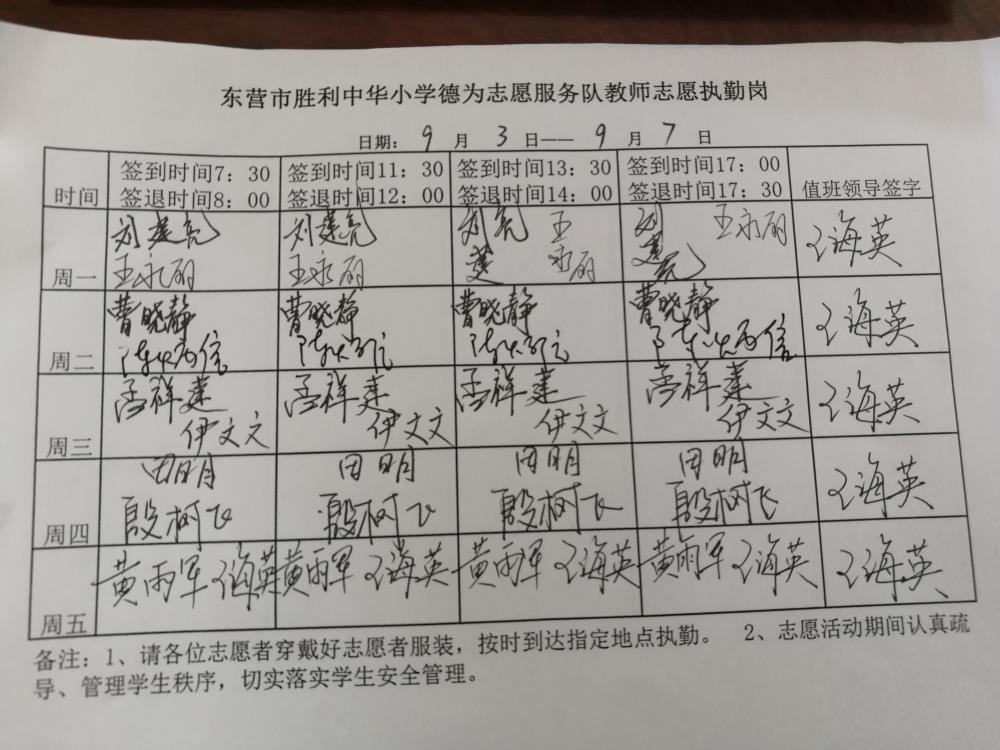 东营市胜利中华小学德为志愿服务队教师志愿执勤岗
日期: 9 月 3 日—— 9 月 7 日
时间 签到时间7: 30 签到时间11: 30 签到时间13: 30 签到时间17: 00 值班领导签字
签退时间8: 00 签退时间12: 00 签退时间14: 00 签退时间17: 30
周一 刘建亮 刘建亮 刘建亮 王永丽 刘建亮 王永丽 王海英
王永丽 王永丽
周二 曹晓静 曹晓静 曹晓静 曹晓静 王海英
周三 孟祥建 孟祥建 孟祥建 孟祥建 王海英
伊文文 伊文文 伊文文 伊文文
周四 田明 田明 田明 田明 王海英
殷树飞 殷树飞 殷树飞 殷树飞
周五 黄雨军 王海英 黄雨军 王海英 黄雨军 王海英 黄雨军 王海英 王海英
备注: 1、请各位志愿者穿戴好志愿者服装，按时到达指定地点执勤。 2、志愿活动期间认真疏
导、管理学生秩序，切实落实学生安全管理。